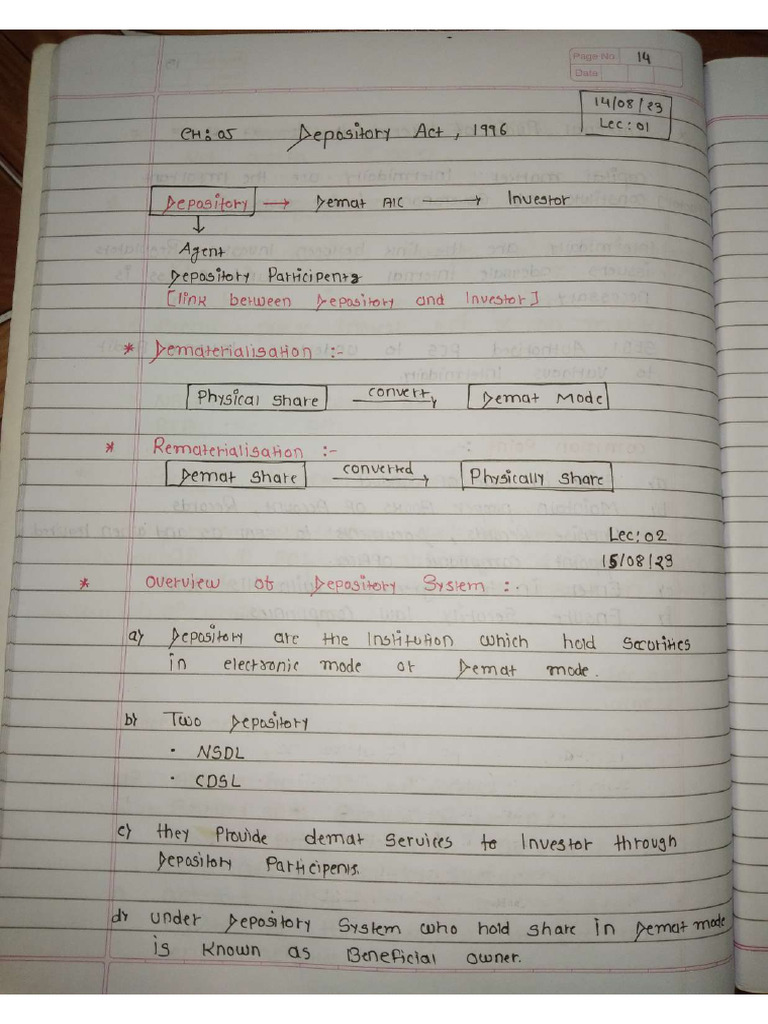 Page No 14
Date
14/08/23
Lec: 01
CH: 05 Depository Act, 1996
Depository → Demat A/C → Investor
↓
Agent
Depository Participents
[link between Depository and Investor]
* Dematerialisation :-
Physical Share convert → Demat Mode
* Rematerialisation :-
Demat Share converted → Physically Share
Lec: 02
15/08/23
* Overview of Depository System :-
a) Depository are the Institution which hold Securities
in electronic mode or Demat mode.
b) Two Depository
• NSDL
• CDSL
c) they Provide demat Services to Investor through
Depository Participents.
d) under Depository System who hold share in Demat mode
is Known as Beneficial owner.